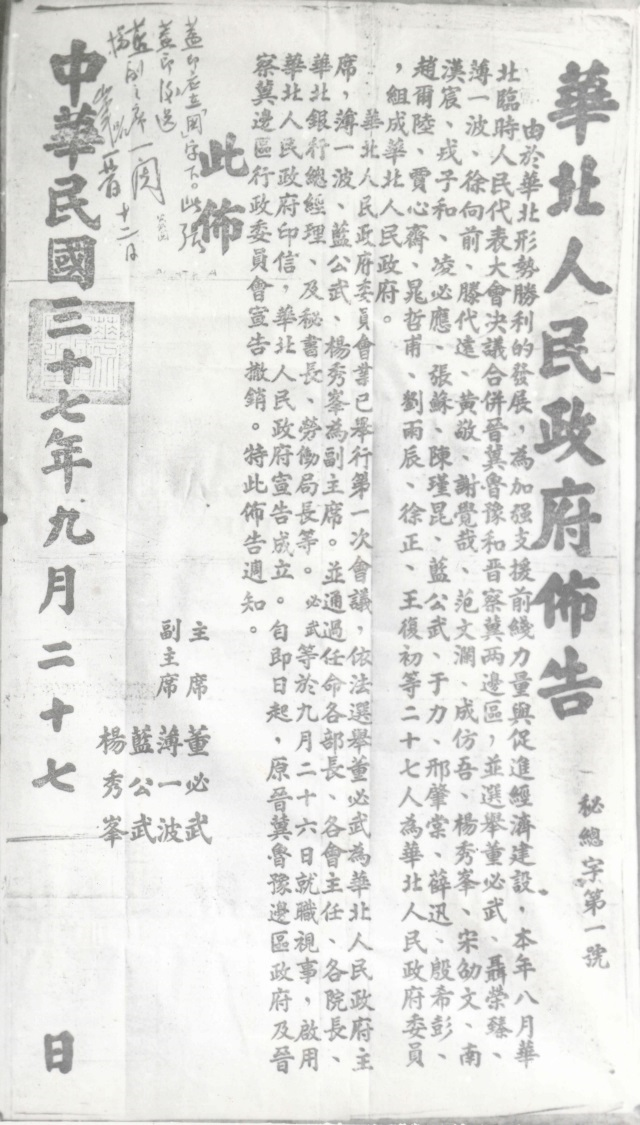 華北人民政府佈告
秘總字第一號
由於華北形勢勝利的發展，為加强支援前綫力量與促進經濟建設，本年八月華
北臨時人民代表大會決議合併晉冀魯豫和晉察冀兩邊區，並選舉董必武、聶榮臻、
薄一波、徐向前、滕代遠、黃敬、謝覺哉、范文瀾、成仿吾、楊秀峯、宋劭文、南
漢宸、戎子和、凌必應、張蘇、陳瑾昆、藍公武、于力、邢肇棠、薛迅、殷希彭、
趙爾陸、賈心齋、晁哲甫、劉雨辰、徐正、王復初等二十七人為華北人民政府委員
，組成華北人民政府。
華北人民政府委員會業已舉行第一次會議，依法選舉董必武為華北人民政府主
席，薄一波、藍公武、楊秀峯為副主席。並通過任命各部長、各會主任、各院長、
華北銀行總經理、及秘書長、勞働局長等。必武等於九月二十六日就職視事，啟用
華北人民政府印信，華北人民政府宣告成立。自即日起，原晉冀魯豫邊區政府及晉
察冀邊區行政委員會宣告撤銷。特此佈告週知。
此佈
主席 董必武
副主席 薄一波
藍公武
楊秀峯
蓋印在「國」字下。此張
蓋印後送
藍副主席一閱
楊
十二日
中華民國三十七年九月二十七日